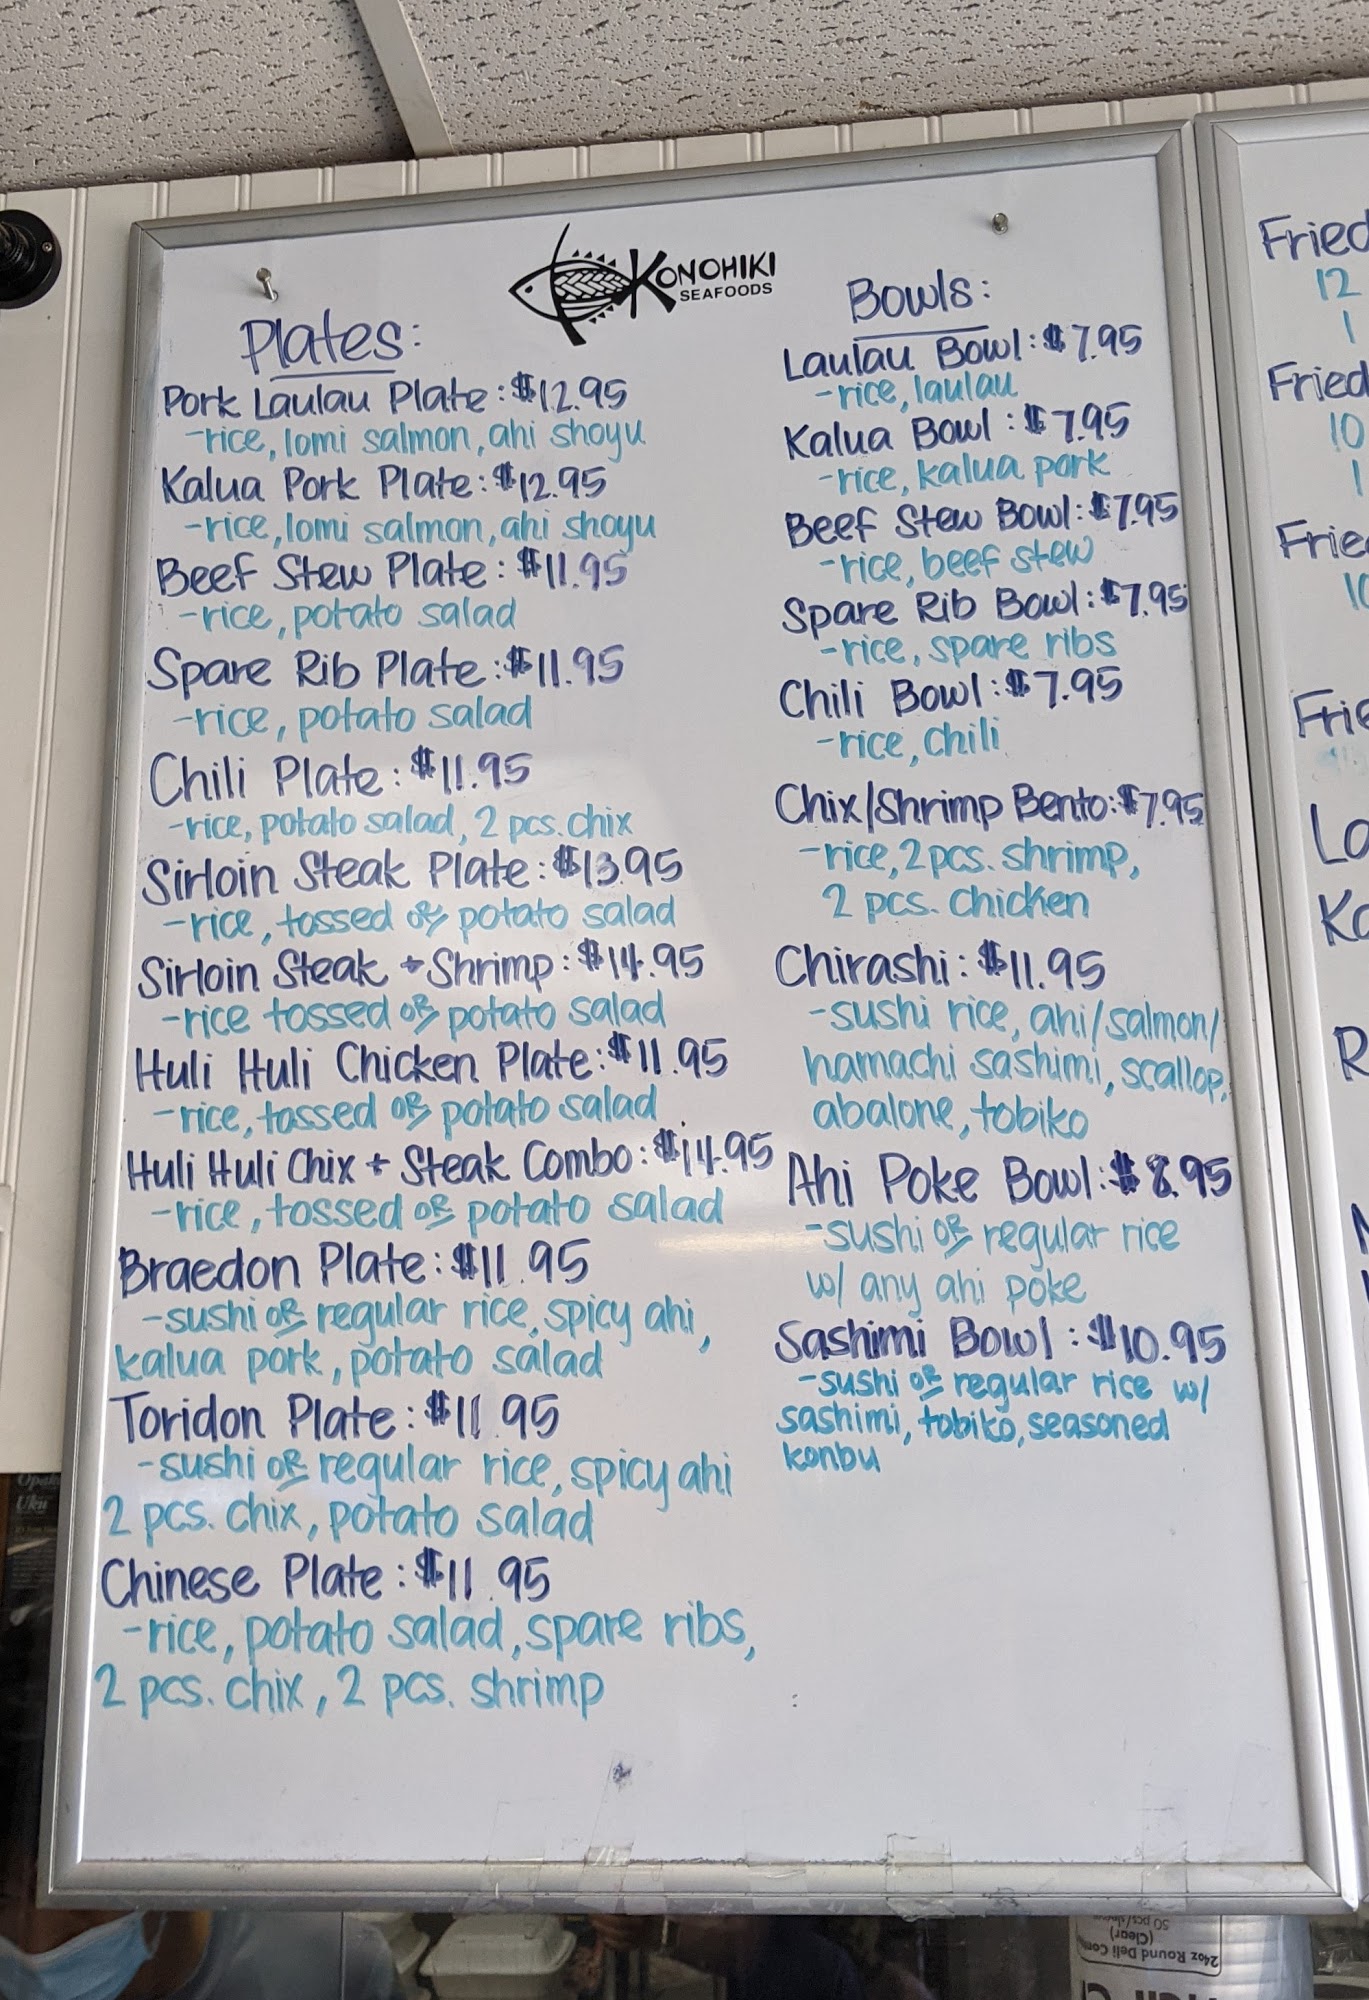 KONOHIKI
SEAFOODS
Plates:
Pork Laulau Plate: $12.95
-rice, lomi salmon, ahi shoyu
Kalua Pork Plate: $12.95
-rice, lomi salmon, ahi shoyu
Beef Stew Plate: $11.95
-rice, potato salad
Spare Rib Plate: $11.95
-rice, potato salad
Chili Plate: $11.95
-rice, potato salad, 2 pcs. chix
Sirloin Steak Plate: $13.95
-rice, tossed or potato salad
Sirloin Steak + Shrimp: $14.95
-rice tossed or potato salad
Huli Huli Chicken Plate: $11.95
-rice, tossed or potato salad
Huli Huli Chix + Steak Combo: $14.95
-rice, tossed or potato salad
Braedon Plate: $11.95
-sushi or regular rice, spicy ahi,
kalua pork, potato salad
Toridon Plate: $11.95
-sushi or regular rice, spicy ahi
2 pcs. chix, potato salad
Chinese Plate: $11.95
-rice, potato salad, spare ribs,
2 pcs. chix, 2 pcs. shrimp
Bowls:
Laulau Bowl: $7.95
-rice, laulau
Kalua Bowl: $7.95
-rice, kalua pork
Beef Stew Bowl: $7.95
-rice, beef stew
Spare Rib Bowl: $7.95
-rice, spare ribs
Chili Bowl: $7.95
-rice, chili
Chix/Shrimp Bento: $7.95
-rice, 2 pcs. shrimp,
2 pcs. chicken
Chirashi: $11.95
-sushi rice, ahi/salmon/
hamachi sashimi, scallop,
abalone, tobiko
Ahi Poke Bowl: $8.95
-sushi or regular rice
w/ any ahi poke
Sashimi Bowl: $10.95
-sushi or regular rice w/
sashimi, tobiko, seasoned
konbu
Fried
12
1
Fried
10
1
24oz Round Deli
(Clear)